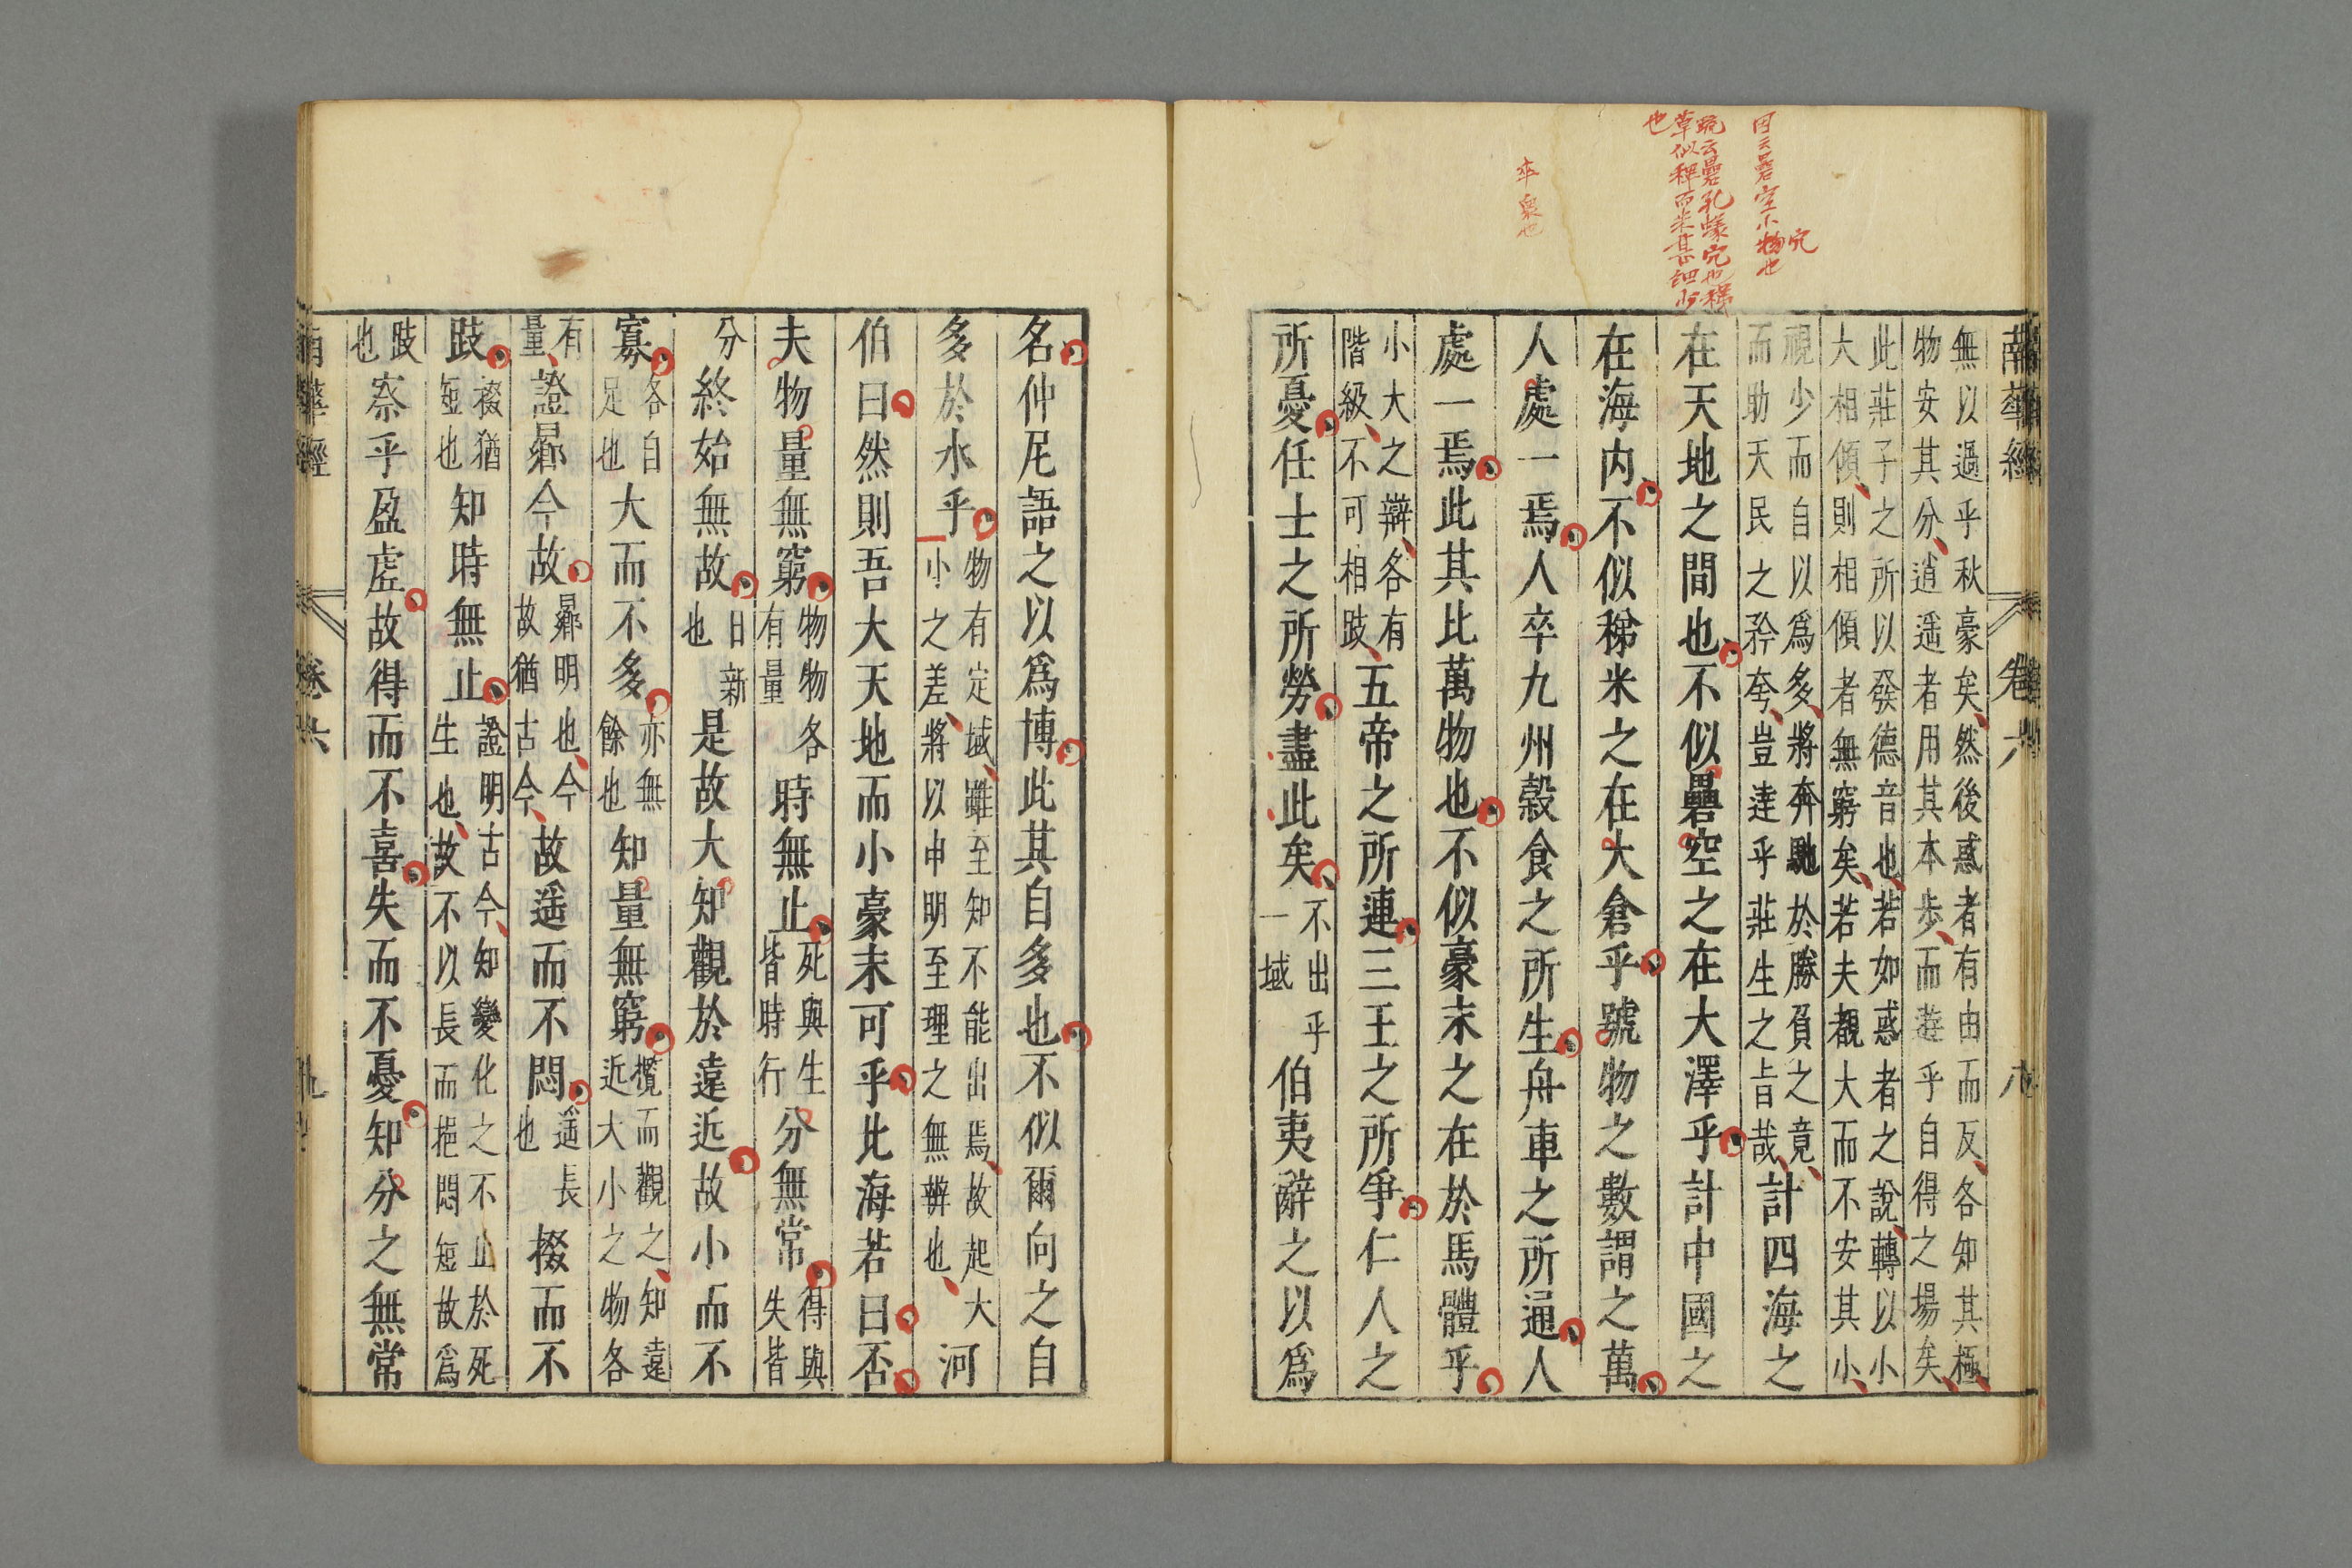 因云礨空小穴也
疏云礨孔蟻穴也稊
草似稗而米甚細少
也
卒衆也
南華經 卷六 八
無以過乎秋豪矣然後惑者有由而反各知其極
物安其分逍遥者用其本步而遊乎自得之場矣
此莊子之所以發德音也若如惑者之說轉以小
大相傾則相傾者無窮矣若夫覩大而不安其小
視少而自以爲多將奔馳於勝負之竟
而助天民之矜夸豈達乎莊生之旨哉
計四海之
在天地之間也不似礨空之在大澤乎計中國之
在海内不似稊米之在大倉乎號物之數謂之萬
人處一焉人卒九州穀食之所生舟車之所通人
處一焉此其比萬物也不似豪末之在於馬體乎
小大之辯各有
階級不可相跂
五帝之所連三王之所爭仁人之
所憂任士之所勞盡此矣
不出乎
一域
伯夷辭之以爲
名仲尼語之以爲博此其自多也不似爾向之自
多於水乎
物有定域雖至知不能出焉故起大
小之差將以申明至理之無辯也
河
伯曰然則吾大天地而小豪末可乎北海若曰否
夫物量無窮
物物各
有量
時無止
死與生
皆時行
分無常
得與
失皆
分
終始無故
日新
也
是故大知觀於遠近故小而不
寡
各自
足也
大而不多
亦無
餘也
知量無窮
攬而觀之知遠
近大小之物各
有
量
證曏今故
曏明也今
故猶古今
故遥而不悶
遥長
也
掇而不
跂
掇猶
短也
知時無止
證明古今知變化之不止於死
生也故不以長而悒悶短故爲
跂
也
察乎盈虚故得而不喜失而不憂知分之無常
南華經 卷六 九